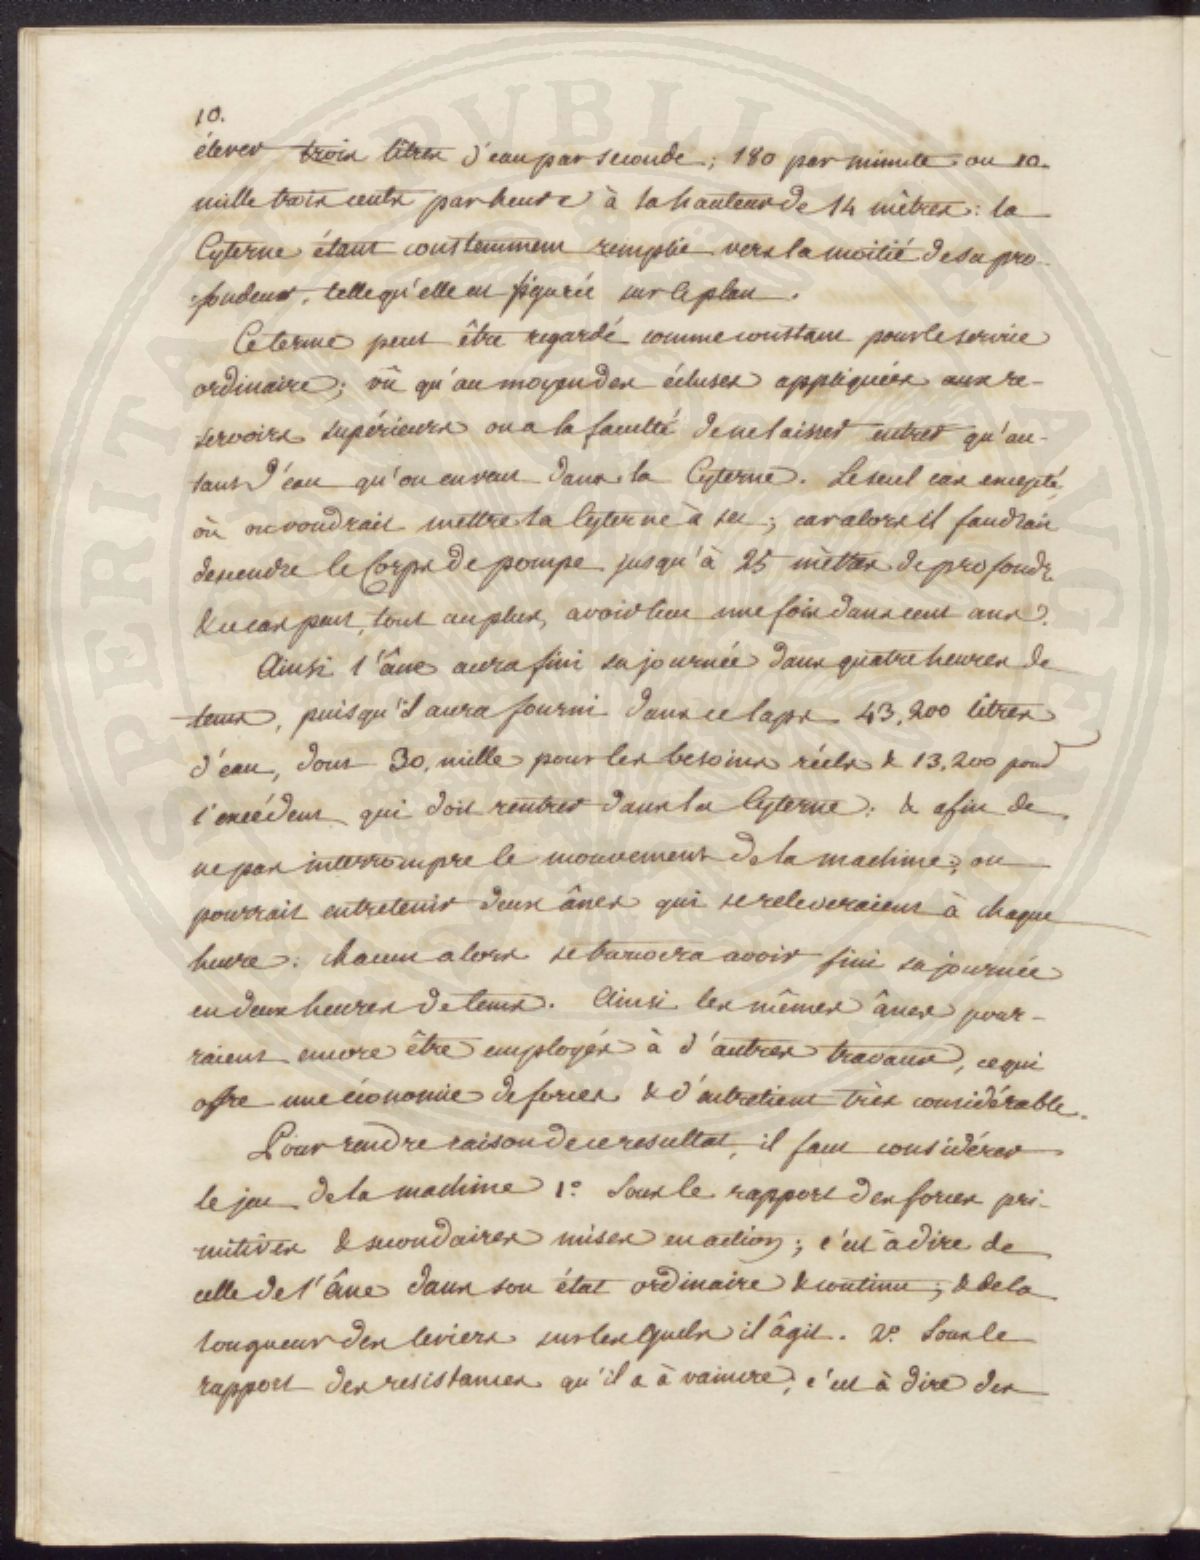 10.
élever trois litres d'eau par seconde; 180 par minute ou 10.
mille trois cents par heure à la hauteur de 14 mètres: la
Cyterne étant constemment remplie vers la moitié de sa pro-
:fondeur, telle qu'elle est figurée sur le plan.
Ce terme peut être regardé comme constant pour le service
ordinaire; vû qu'au moyen des écluses appliquées aux re-
servoirs supérieurs on a la faculté de ne laisser entrer qu'au-
tant d'eau qu'on en veut dans la Cyterne. Le seul cas excepté,
où on voudrait mettre la Cyterne à sec; car alors il faudrait
descendre le Corps de pompe jusqu'à 25 mètres de profondr
& ce cas peut, tout au plus, avoir lieu une fois dans cent ans.
Ainsi l'âne aura fini sa journée dans quatre heures de
tems, puisqu'il aura fourni dans ce laps 43,200 litres
d'eau, dont 30, mille pour les besoins réels & 13,200 pour
l'excédent qui doit rentrer dans la Cyterne: & afin de
ne pas interrompre le mouvement de la machine, on
pourrait entretenir deux ânes qui se releveraient à chaque
heure: chacun alors se trouvera avoir fini sa journée
en deux heures de tems. Ainsi les mêmes ânes pour-
raient encore être employés à d'autres travaux, ce qui
offre une économie de forces & d'entretient très considérable.
Pour rendre raison de ce resultat, il faut considérer
le jeu de la machine 1.º Sous le rapport des forces pri-
mitives & secondaires mises en action; c'est à dire de
celle de l'âne dans son état ordinaire & continu; & de la
longueur des leviers sur les quels il âgit. 2.º Sous le
rapport des resistances qu'il a à vaincre, c'est à dire des
SPERITA PUBLICE AUGENT